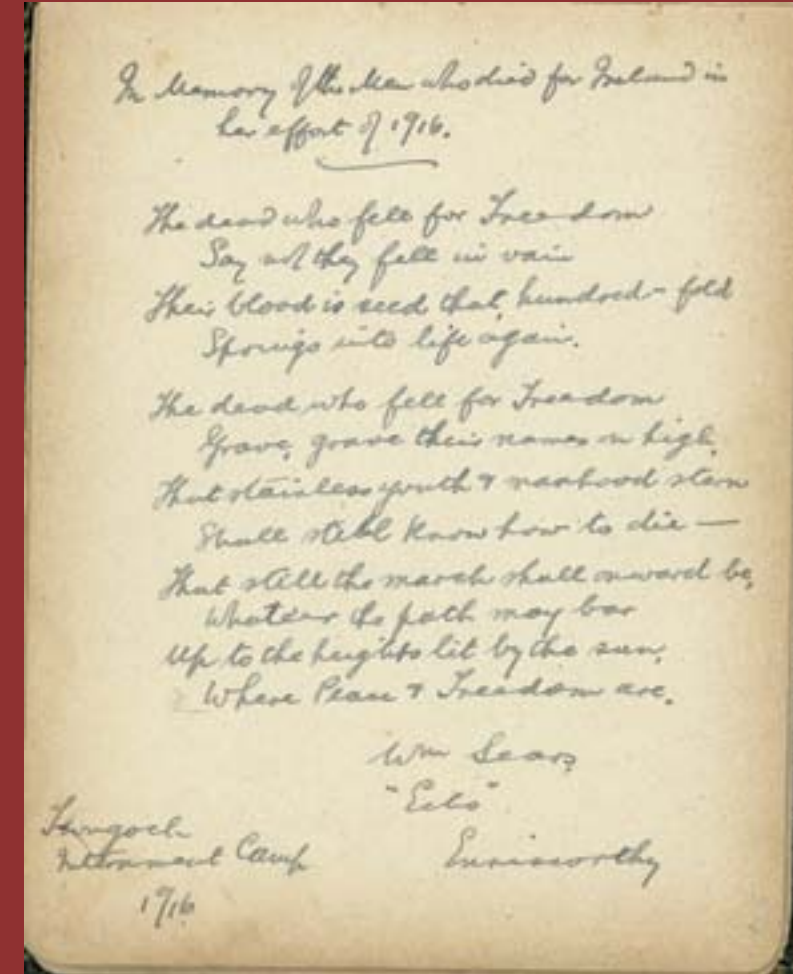 In Memory of the Men who died for Ireland in
her effort of 1916.
The dead who fell for Freedom
Say not they fell in vain
Their blood is seed that hundred-fold
Springs into life again.
The dead who fell for Freedom
Grave, grave their names on high,
That stainless youth & manhood stern
Shall still know how to die —
That still the march shall onward be,
Whate'er the path may bar
Up to the heights lit by the sun,
Where Peace & Freedom are.
Wm Sears
"Echo"
Enniscorthy
Frongoch
Internment Camp
1916